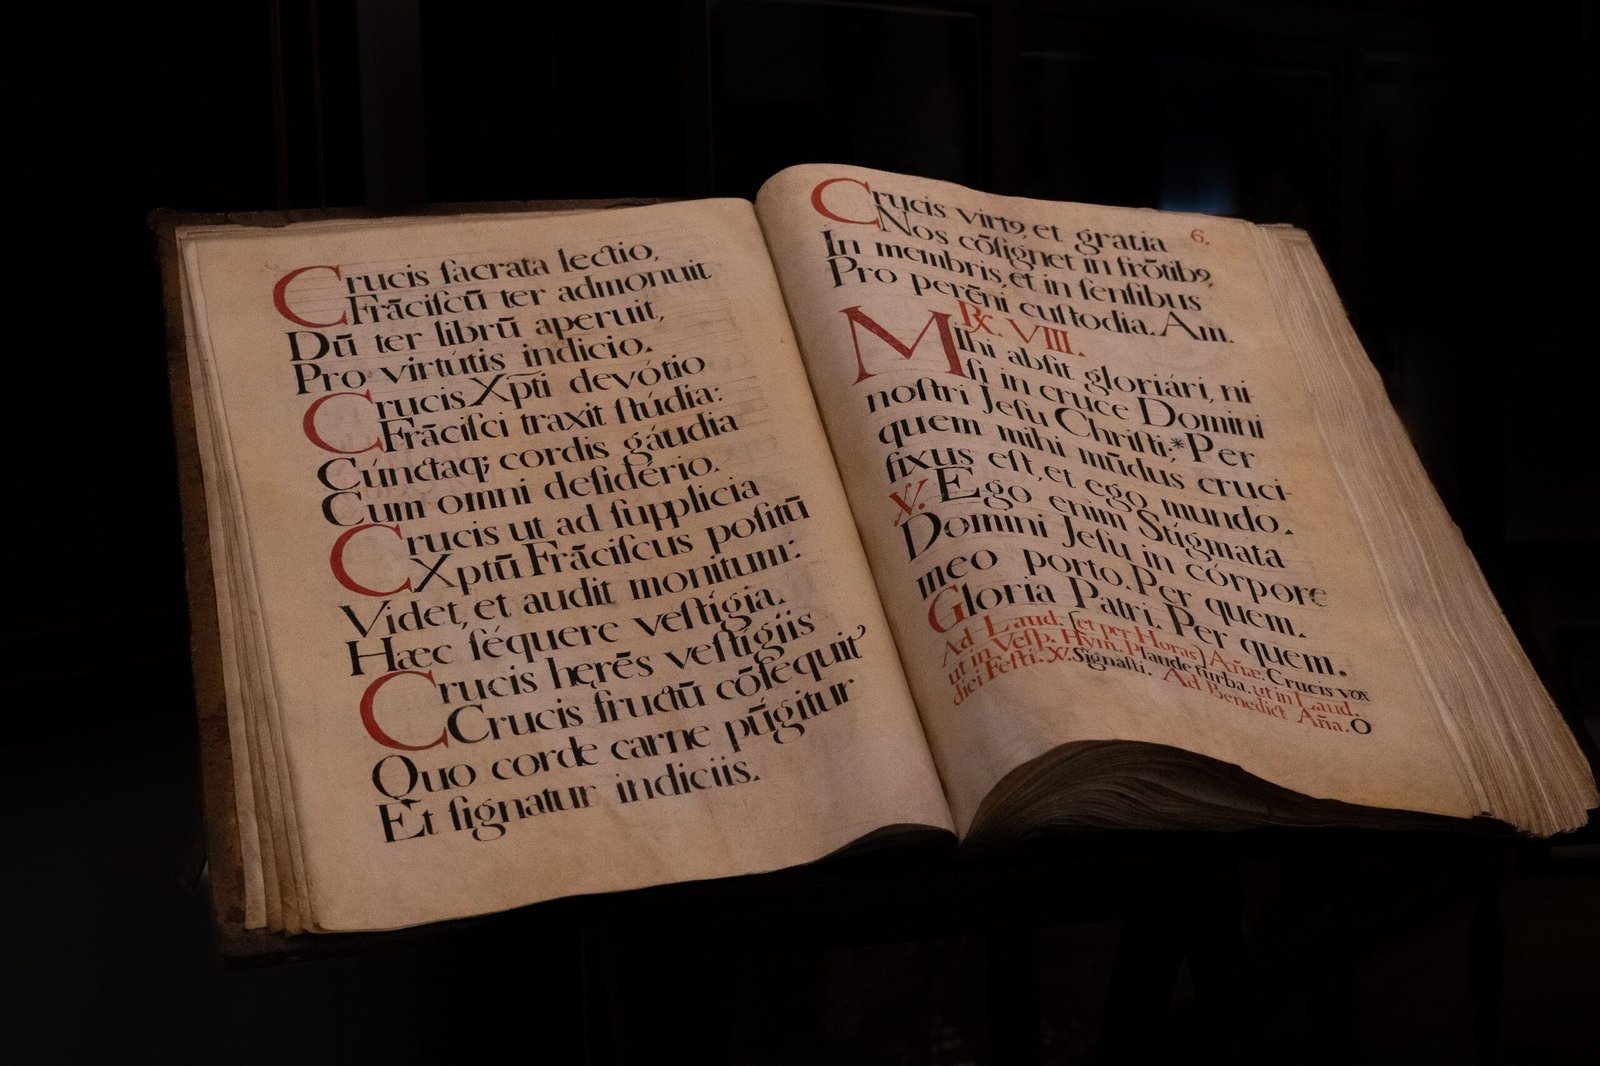 Crucis ſacrata lectio,
Frāciſcū ter admonuit
Dū ter librū aperuit,
Pro virtútis indicio.
Crucis Xp̄ti devótio
Frāciſci traxit ſtúdia:
Cúnctaqꝫ cordis gáudia
Cum omni deſidério.
Crucis ut ad ſupplicia
Xptū Frāciſcus poſitū
Videt, et audit monitum:
Hæc ſéquere veſtígia.
Crucis herēs veſtigiis
Crucis fructū cōſequit᷑
Quo corde carne pūgitur
Et ſignatur indiciis.
Crucis virtꝰ, et gratia 6.
Nos cōſignet in frōtibꝰ,
In membris, et in ſenſibus
Pro perēni cuſtodia. Am̄.
℞. VIII.
Mihi abſit gloriári, ni-
ſi in cruce Domini
noſtri Jeſu Chriſti:*Per
quem mihi mūdus cruci-
fixus eſt, et ego mundo.
℣. Ego enim Stígmata
Domini Jeſu in córpore
meo porto. Per quem.
Gloria Patri. Per quem.
Ad Laud. (et per Horas) Añæ: Crucis vox
ut in Veſp. Hym. Plaude turba. ut in Laud.
diei Feſti. ℣. Signaſti. Ad Benedict Aña. O